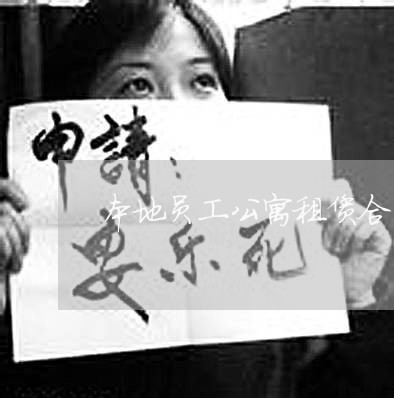 申請：
本地员工公寓租赁合
安乐死